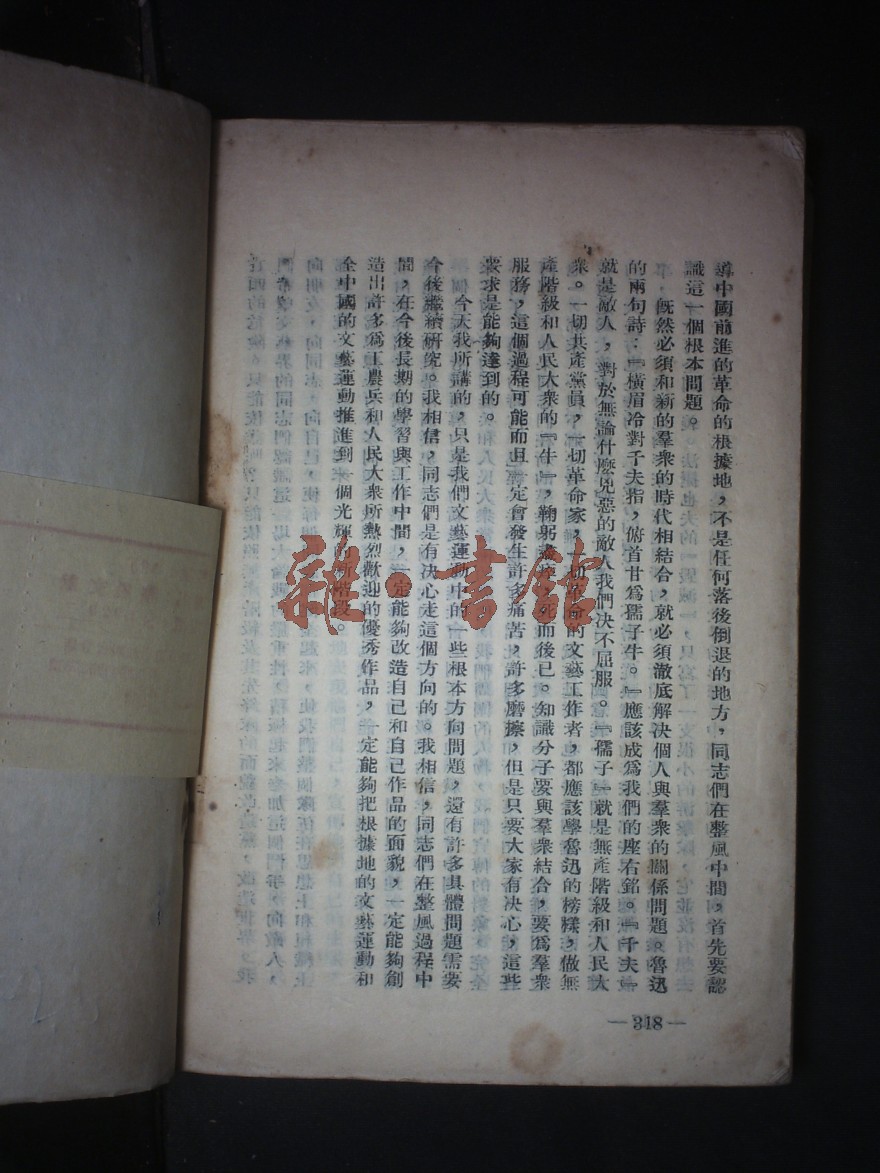 導中國前進的革命的根據地，不是任何落後倒退的地方，同志們在整風中間，首先要認
識這一個根本問題。
既然必須和新的羣衆的時代相結合，就必須澈底解決個人與羣衆的關係問題。魯迅
的兩句詩：『橫眉冷對千夫指，俯首甘爲孺子牛。』應該成爲我們的座右銘。『千夫』
就是敵人，對於無論什麼兇惡的敵人我們決不屈服。『孺子』就是無產階級和人民大
衆。一切共產黨員，一切革命家，一切革命的文藝工作者，都應該學魯迅的榜樣，做無
產階級和人民大衆的『牛』，鞠躬盡瘁，死而後已。知識分子要與羣衆結合，要爲羣衆
服務，這個過程可能而且一定會發生許多痛苦，許多磨擦，但是只要大家有決心，這些
要求是能夠達到的。
今天我所講的，只是我們文藝運動中的一些根本方向問題，還有許多具體問題需要
今後繼續研究。我相信，同志們是有決心走這個方向的。我相信，同志們在整風過程中
間，在今後長期的學習與工作中間，一定能夠改造自己和自己作品的面貌，一定能夠創
造出許多爲工農兵和人民大衆所熱烈歡迎的優秀作品，一定能夠把根據地的文藝運動和
全中國的文藝運動推進到一個光輝的新階段。
—318—
雜·書館